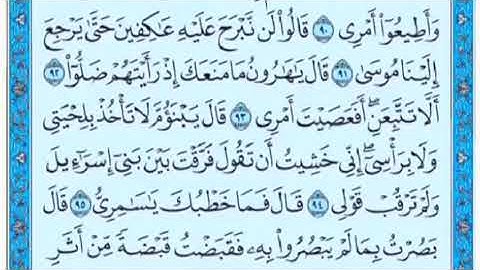 وَأَطِيعُوٓا۟ أَمْرِى ٩٠ قَالُوا۟ لَن نَّبْرَحَ عَلَيْهِ عَٰكِفِينَ حَتَّىٰ يَرْجِعَ
إِلَيْنَا مُوسَىٰ ٩١ قَالَ يَٰهَٰرُونُ مَا مَنَعَكَ إِذْ رَأَيْتَهُمْ ضَلُّوٓا۟ ٩٢
أَلَّا تَتَّبِعَنِ ۖ أَفَعَصَيْتَ أَمْرِى ٩٣ قَالَ يَبْنَؤُمَّ لَا تَأْخُذْ بِلِحْيَتِى
وَلَا بِرَأْسِىٓ ۖ إِنِّى خَشِيتُ أَن تَقُولَ فَرَّقْتَ بَيْنَ بَنِىٓ إِسْرَٰٓءِيلَ
وَلَمْ تَرْقُبْ قَوْلِى ٩٤ قَالَ فَمَا خَطْبُكَ يَٰسَٰمِرِىُّ ٩٥ قَالَ
بَصُرْتُ بِمَا لَمْ يَبْصُرُوا۟ بِهِۦ فَقَبَضْتُ قَبْضَةً مِّنْ أَثَرِ